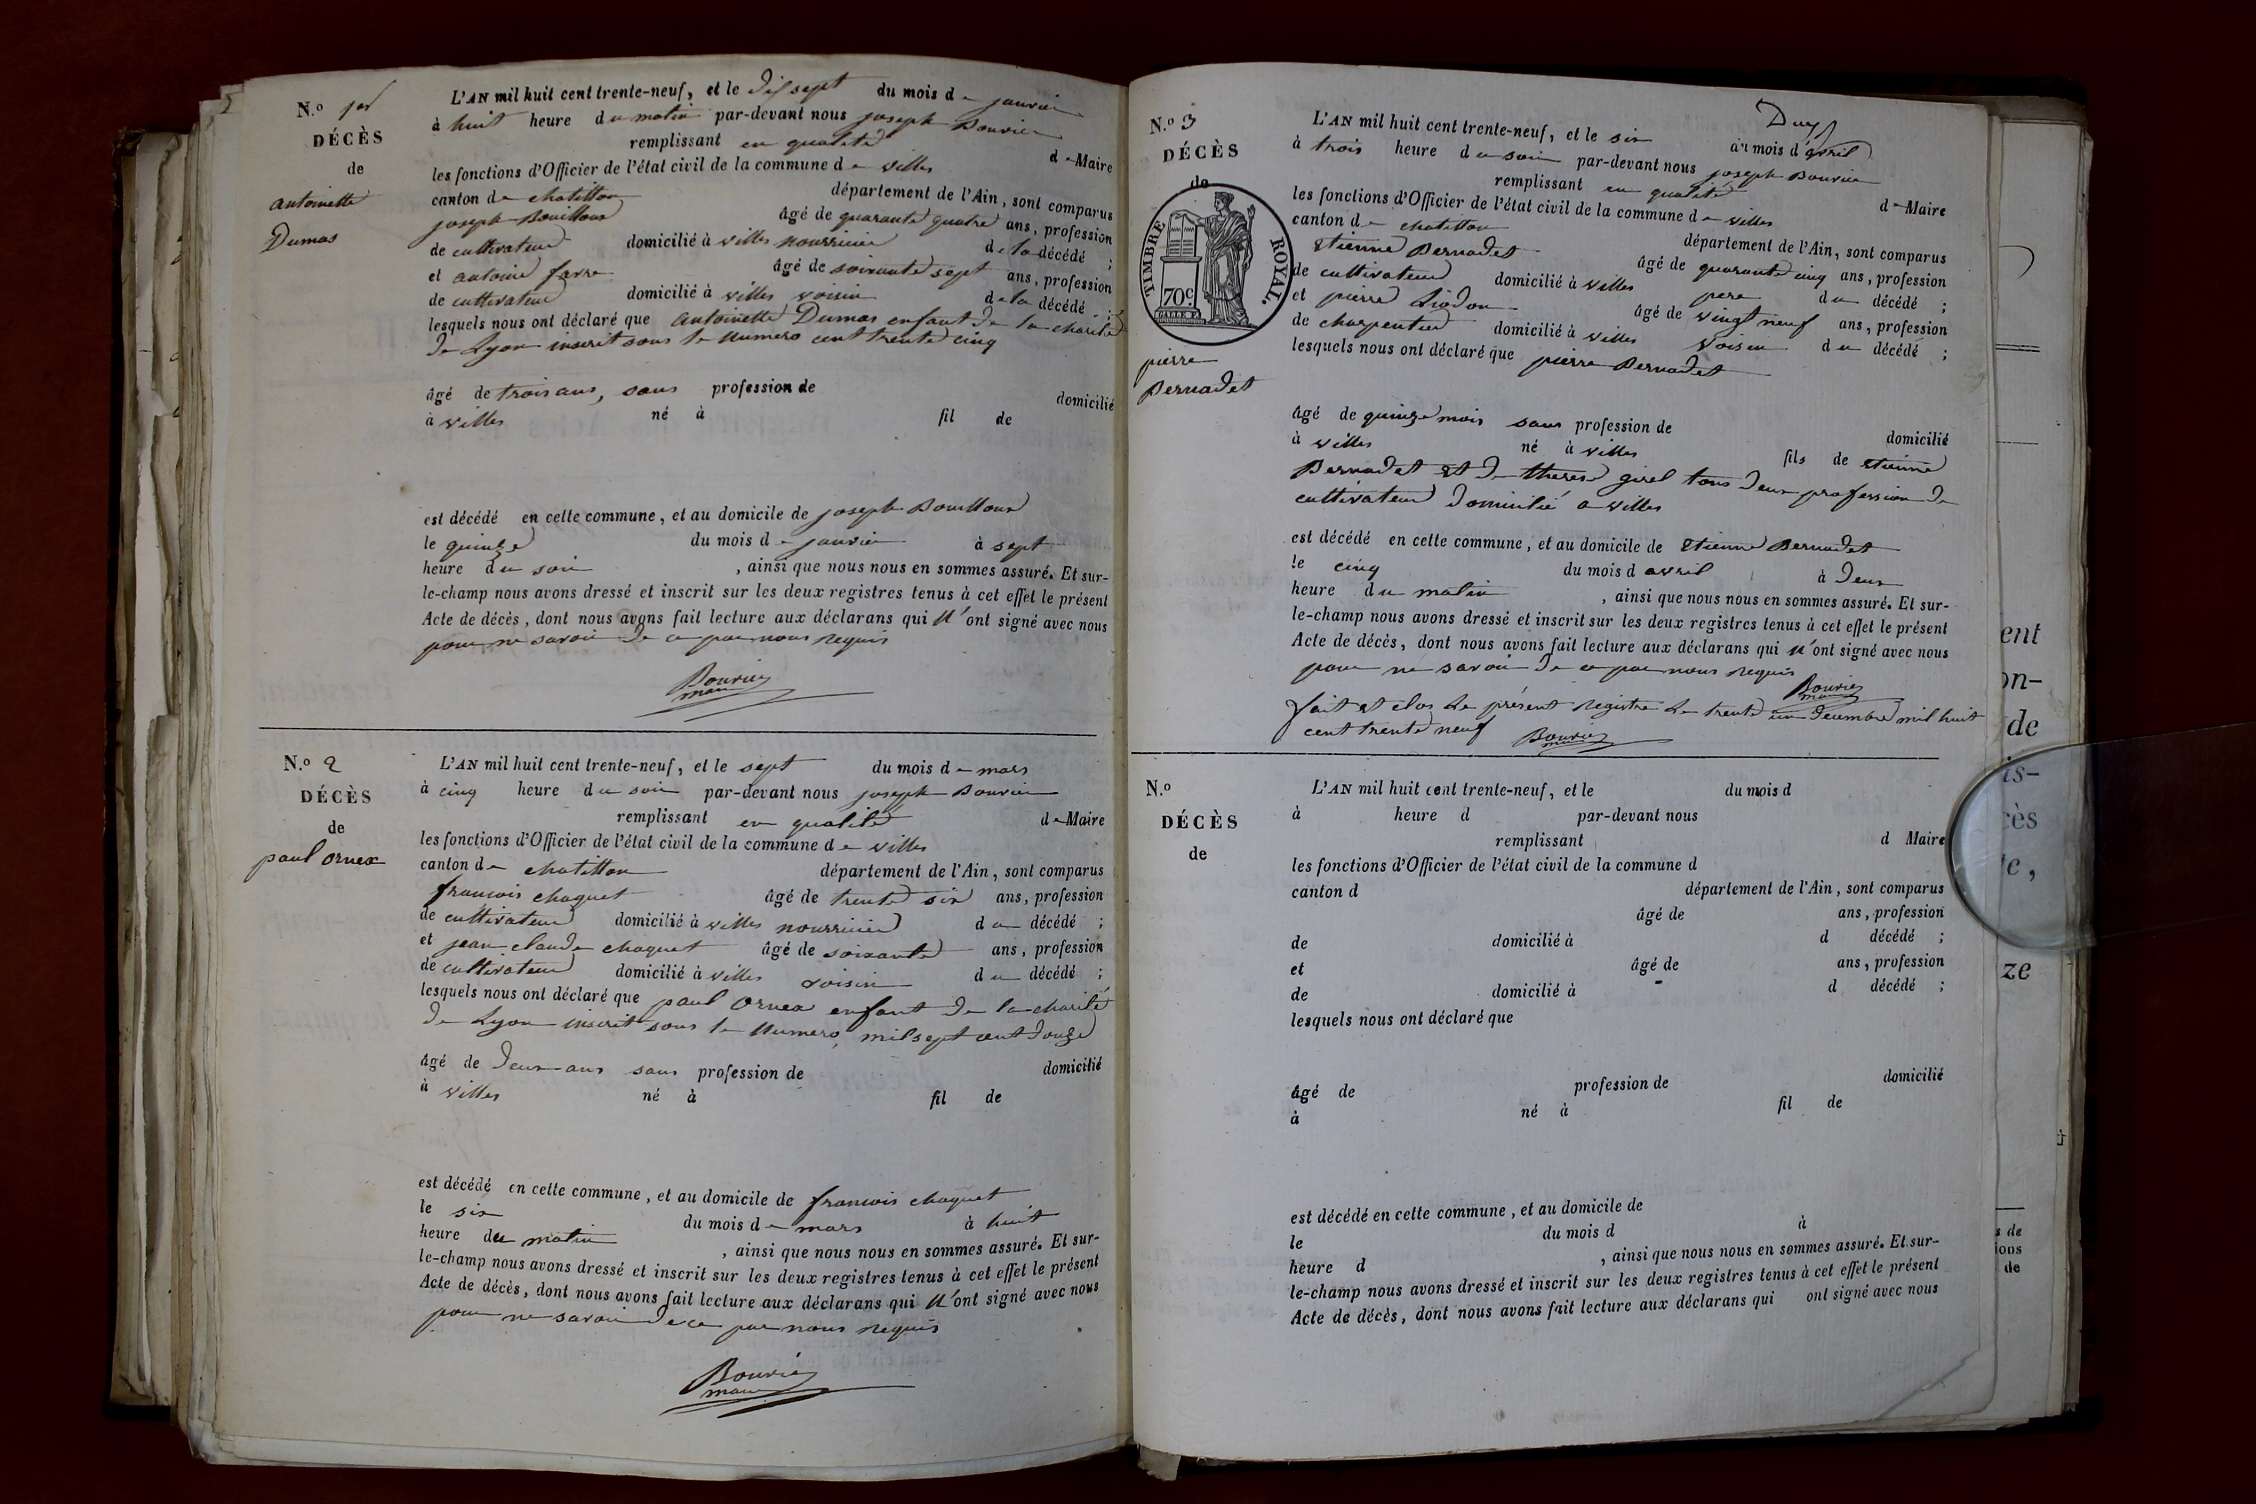 N.º 1er
DÉCÈS
de
antoinette
Dumas
L'AN mil huit cent trente-neuf, et le dix sept du mois de janvier
à huit heure du matin par-devant nous joseph Bouvier
remplissant en qualité de Maire
les fonctions d'Officier de l'état civil de la commune de villes
canton de chatillon département de l'Ain, sont comparus
joseph Bouilloux âgé de quarante quatre ans, profession
de cultivateur domicilié à villes nourricier de la décédé ;
et antoine favre âgé de soixante sept ans, profession
de cultivateur domicilié à villes voisin de la décédé ;
lesquels nous ont déclaré que antoinette Dumas enfant de la charité
de Lyon inscrit sous le numero cent trente cinq
âgé de trois ans, sans profession de domicilié
à villes né à fil de
est décédé en cette commune, et au domicile de joseph Bouilloux
le quinze du mois de janvier à sept
heure du soir , ainsi que nous nous en sommes assuré. Et sur-
le-champ nous avons dressé et inscrit sur les deux registres tenus à cet effet le présent
Acte de décès, dont nous avons fait lecture aux déclarans qui n'ont signé avec nous
pour ne savoir de ce par nous requis
Bouvier
maire
N.º 2
DÉCÈS
de
paul ornex
L'AN mil huit cent trente-neuf, et le sept du mois de mars
à cinq heure du soir par-devant nous joseph Bouvier
remplissant en qualité de Maire
les fonctions d'Officier de l'état civil de la commune de villes
canton de chatillon département de l'Ain, sont comparus
francois chaquet âgé de trente six ans, profession
de cultivateur domicilié à villes nourricier du décédé ;
et jean claude chaquet âgé de soixante ans, profession
de cultivateur domicilié à villes voisin du décédé ;
lesquels nous ont déclaré que paul ornex enfant de la charité
de Lyon inscrit sous le numero, mil sept cent douze
âgé de deux ans sans profession de domicilié
à villes né à fil de
est décédé en cette commune, et au domicile de francois chaquet
le six du mois de mars à huit
heure du matin , ainsi que nous nous en sommes assuré. Et sur-
le-champ nous avons dressé et inscrit sur les deux registres tenus à cet effet le présent
Acte de décès, dont nous avons fait lecture aux déclarans qui n'ont signé avec nous
pour ne savoir de ce par nous requis
Bouvier
maire
N.º 3
DÉCÈS
de
TIMBRE ROYAL.
70c
pierre
Bernadet
L'AN mil huit cent trente-neuf, et le six du mois d'avril
à trois heure du soir par-devant nous joseph Bouvier
remplissant en qualité de Maire
les fonctions d'Officier de l'état civil de la commune de villes
canton de chatillon département de l'Ain, sont comparus
etienne Bernadet âgé de quarante cinq ans, profession
de cultivateur domicilié à villes pere du décédé ;
et pierre Liodon âgé de vingt neuf ans, profession
de charpentier domicilié à villes voisin du décédé ;
lesquels nous ont déclaré que pierre Bernadet
âgé de quinze mois sans profession de domicilié
à villes né à villes fils de etienne
Bernadet et de therese girel tous deux profession de
cultivateur domicilié a villes
est décédé en cette commune, et au domicile de etienne Bernadet
le cinq du mois d avril à deux
heure du matin , ainsi que nous nous en sommes assuré. Et sur-
le-champ nous avons dressé et inscrit sur les deux registres tenus à cet effet le présent
Acte de décès, dont nous avons fait lecture aux déclarans qui n'ont signé avec nous
pour ne savoir de ce par nous requis
Bouvier
maire
fait et clos le présent registre le trente un decembre mil huit
cent trente neuf Bouvier
maire
N.º
DÉCÈS
de
L'AN mil huit cent trente-neuf, et le du mois d
à heure d par-devant nous
remplissant d Maire
les fonctions d'Officier de l'état civil de la commune d
canton d département de l'Ain, sont comparus
âgé de ans, profession
de domicilié à d décédé ;
et âgé de ans, profession
de domicilié à d décédé ;
lesquels nous ont déclaré que
âgé de profession de domicilié
à né à fil de
est décédé en cette commune, et au domicile de
le du mois d à
heure d , ainsi que nous nous en sommes assuré. Et sur-
le-champ nous avons dressé et inscrit sur les deux registres tenus à cet effet le présent
Acte de décès, dont nous avons fait lecture aux déclarans qui ont signé avec nous
ent
on-
de
is-
cès
te,
ze
s de
ions
de